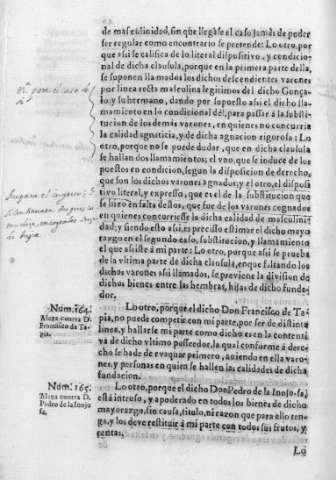 de masculinidad, sin que llegase al caso jamàs de poder
ser regular como encontrario se pretende: Lo otro, por
que assi se califica de lo literal dispositivo, y condicional
de dicha clausula, porque en la primera parte della,
se suponen llamados los dichos descendientes varones
por linea recta masculina legitimos del dicho Gonça-
lo, y su hermano, dando por supuesto assi el dicho lla-
mamiento en lo condicional dèl, para passar à la substitu-
cion de los demàs varones, en quienes no concurrirà
la calidad agnaticia, y de dicha agnacion rigorosa: Lo
otro, porque no se puede dudar, que en dicha clausula
se hallan dos llamamientos; el vno, que se induce de los
puestos en condicion, segun la disposicion de derecho,
que son los dichos varones agnados; y el otro, el disposi
tivo literal, y expresso, que es el de la substitucion que
se hizo en falta destos, que fue de los varones cognados
en quienes concurriesse la dicha calidad de masculini-
dad; y siendo esto assi, es preciso estimar el dicho mayo
razgo en el segundo caso, substitucion, y llamamiento
el que assiste à mi parte: Lo otro, porque assi se prueba
de la vltima parte de dicha clausula, en que faltando los
dichos varones assi llamados, se previene la division de
dichos bienes entre las hembras, hijas de dicho funda-
Num. 164.
Alega contra D.
Francisco de Ta-
pia.
Lo otro, porque el dicho Don Francisco de Ta-
pia, no puede competir con mi parte, por ser de distinta
linea, y hallarse mi parte como dicho es en la contenti
va de dicho vltimo possessor, la qual conforme à dere-
cho se ha de evaquar primero, aviendo en ella varo-
nes, y personas en quien se hallen las calidades de dicha
fundacion.
Num. 165.
Alega contra D.
Pedro de la Inojo-
sa.
Lo otro, porque el dicho Don Pedro de la Inojosa,
està intruso, y apoderado en todos los bienes de dicho
mayorazgo, sin causa, titulo, ni razon que para ello ten-
ga, y los deve restituir à mi parte con todos sus frutos, y
rentas.
Lo